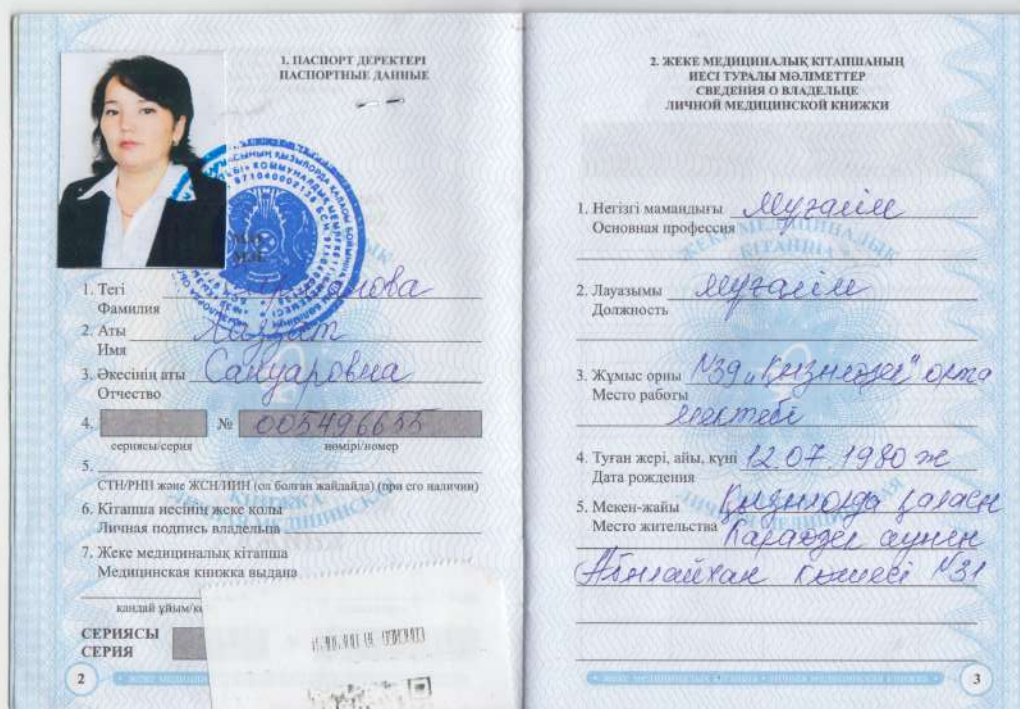 1. ПАСПОРТ ДЕРЕКТЕРІ
ПАСПОРТНЫЕ ДАННЫЕ
1. Тегі
Фамилия
2. Аты
Имя
3. Әкесінің аты Сануаровна
Отчество
4. № 005496655
сериясы/серия нөмірі/номер
5.
СТН/РНН және ЖСН/ИИН (ол болған жағдайда) (при его наличии)
6. Кітапша иесінің жеке қолы
Личная подпись владельца
7. Жеке медициналық кітапша
Медицинская книжка выдана
қандай ұйым/
СЕРИЯСЫ
СЕРИЯ
2
2. ЖЕКЕ МЕДИЦИНАЛЫҚ КІТАПШАНЫҢ
ИЕСІ ТУРАЛЫ МӘЛІМЕТТЕР
СВЕДЕНИЯ О ВЛАДЕЛЬЦЕ
ЛИЧНОЙ МЕДИЦИНСКОЙ КНИЖКИ
1. Негізгі мамандығы Мұғалім
Основная профессия
2. Лауазымы Мұғалім
Должность
3. Жұмыс орны №39 „Қызылөзек" орта
Место работы
мектебі
4. Туған жері, айы, күні 12.07.1980 ж
Дата рождения
5. Мекен-жайы Қызылорда қаласы
Место жительства Караөзек ауылы
Абылайхан көшесі №31
3